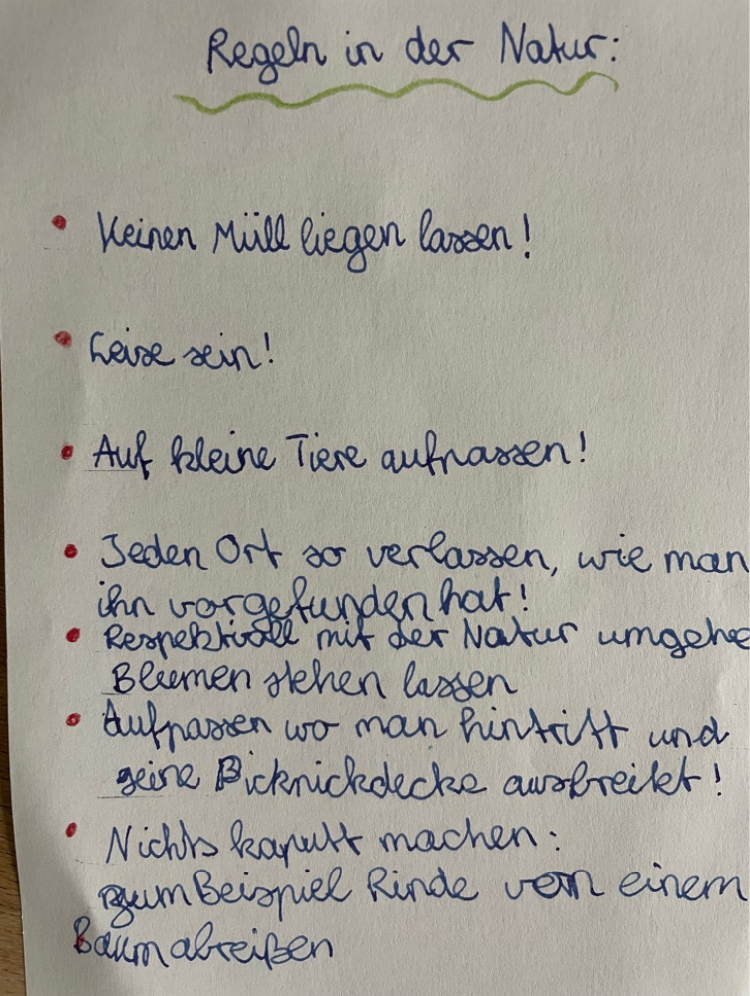 Regeln in der Natur:
• Keinen Müll liegen lassen!
• Leise sein!
• Auf kleine Tiere aufpassen!
• Jeden Ort so verlassen, wie man
ihn vorgefunden hat!
• Respektvoll mit der Natur umgehe
Blumen stehen lassen
• Aufpassen wo man hintritt und
seine Picknickdecke ausbreitet!
• Nichts kaputt machen:
zum Beispiel Rinde von einem
Baum abreißen